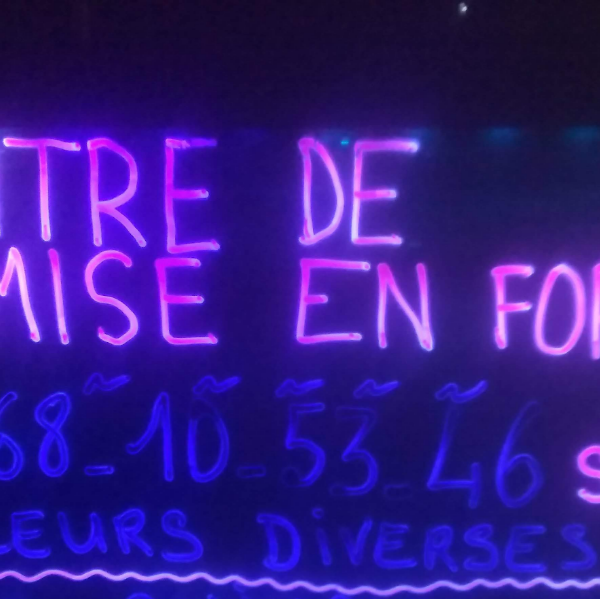 TRE DE
MISE EN FOR
68-10-53-46 S
LEURS DiVERSES